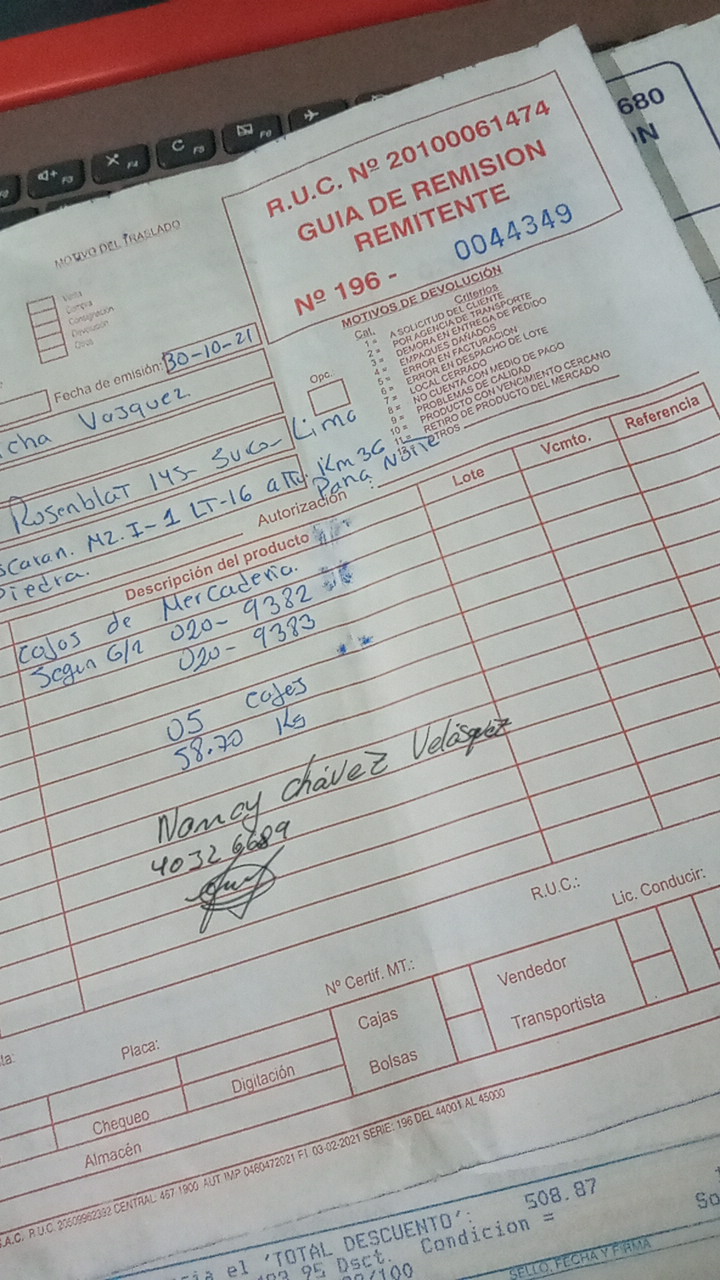 680
N
R.U.C. Nº 20100061474
GUIA DE REMISION
REMITENTE
Nº 196 - 0044349
MOTIVO DEL TRASLADO
Venta
Compra
Consignación
Devolución
Otros
MOTIVOS DE DEVOLUCIÓN
Cat. Criterios
1 = A SOLICITUD DEL CLIENTE
2 = POR AGENCIA DE TRANSPORTE
3 = DEMORA EN ENTREGA DE PEDIDO
4 = EMPAQUES DAÑADOS
5 = ERROR EN FACTURACION
6 = ERROR EN DESPACHO DE LOTE
7 = LOCAL CERRADO
8 = NO CUENTA CON MEDIO DE PAGO
9 = PROBLEMAS DE CALIDAD
10 = PRODUCTO CON VENCIMIENTO CERCANO
11 = RETIRO DE PRODUCTO DEL MERCADO
OTROS
Opc.
Fecha de emisión: 30-10-21
cha Vasquez
Rosenblat 145- Surco- Lima
scaran. Mz. I-1 LT-16 altu. Km 36
Pana Norte
Piedra.
Autorización :
Descripción del producto Lote Vcmto. Referencia
Cajas de Mercaderia.
Segun G/R 020- 9382
020- 9383
05 cajas
58.70 Kg
Nancy Chávez Velásquez
40326689
R.U.C.: Lic. Conducir:
Nº Certif. MT.:
ta: Placa:
Cajas Vendedor
Bolsas Transportista
Chequeo Digitación
Almacén
S.A.C. R.U.C. 20609962392 CENTRAL: 467 1900 AUT. IMP 0460472021 F.I. 03-02-2021 SERIE: 196 DEL 44001 AL 45000
el 'TOTAL DESCUENTO': 508.87
95 Dsct. Condicion =
/100
SELLO, FECHA Y FIRMA
So